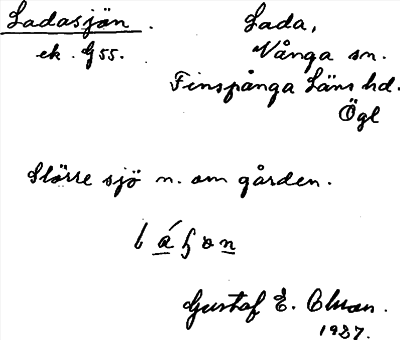 Ladasjön.
ek. G 55.
Lada,
Vånga sn.
Finspånga Läns hd.
Ögl
Större sjö n. om gården.
Gustaf E. Olson.
1927.